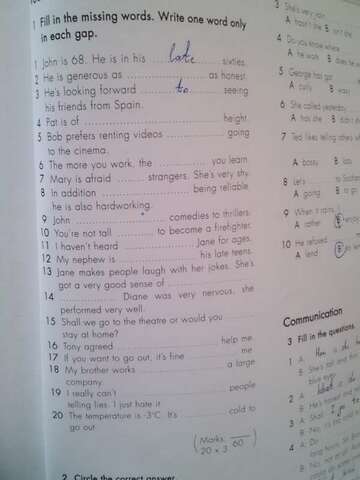 1 Fill in the missing words. Write one word only
in each gap.
1 John is 68. He is in his late sixties.
2 He is generous as .................. as honest.
3 He's looking forward to seeing
his friends from Spain.
4 Pat is of .................. height.
5 Bob prefers renting videos .................. going
to the cinema.
6 The more you work, the .................. you learn.
7 Mary is afraid .................. strangers. She's very shy.
8 In addition .................. being reliable,
he is also hardworking.
9 John .................. comedies to thrillers.
10 You're not tall .................. to become a firefighter.
11 I haven't heard .................. Jane for ages.
12 My nephew is .................. his late teens.
13 Jane makes people laugh with her jokes. She's
got a very good sense of ..................
14 .................. Diane was very nervous, she
performed very well.
15 Shall we go to the theatre or would you ..................
stay at home?
16 Tony agreed .................. help me.
17 If you want to go out, it's fine .................. me.
18 My brother works .................. a large
company.
19 I really can't .................. people
telling lies. I just hate it.
20 The temperature is -3°C. It's .................. cold to
go out.
(Marks: 60
20 x 3)
2 Circle the correct answer.
3 She's very
A hasn't she B isn't
4 Do you know where
A he work B does he
5 George has got
A curly B
6 She called yesterday
A has she B didn't
7 Ted likes telling others
A bossy B
8 Let's to
A going B to go
9 When it rains,
A rather B
10 He refused
A lend B
Communication
3 Fill in the questions
1 A: How is he
B: She's tall and
blue eyes.
2 A: What is she
B: He's honest and
3 A: Shall I go
B: No, it's
4 A: Do
long
B: No, not at all.